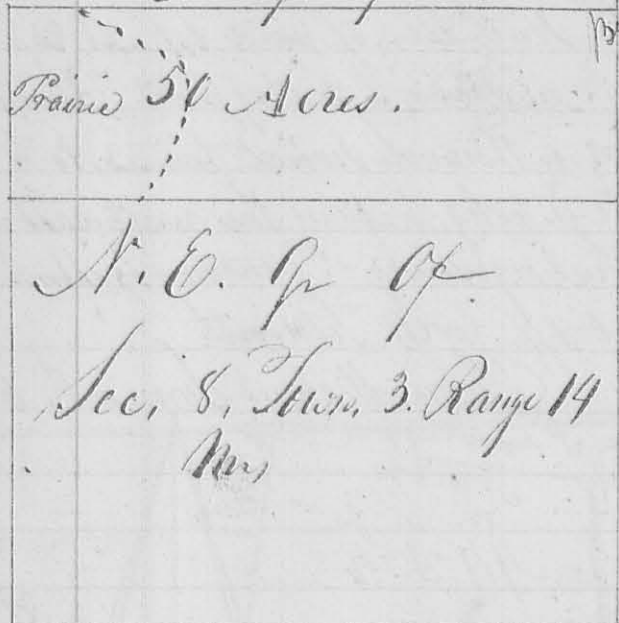 Prairie 50 Acres.
N. E. Qr Of
Sec. 8, Town, 3. Range 14